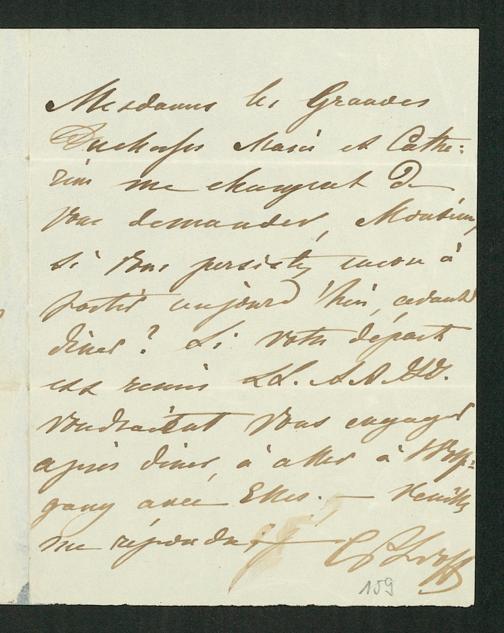 Mesdames les Grandes
Duchesses Marie et Cathe:
rine me chargent de
vous demander, Monsieur,
si vous persistez encore à
partir aujourd'hui, avant
diner? Si votre départ
est remis LL. AA. II.
voudraient vous engager
après diner, à aller à
avec Elles. — Veuillez
me répondre
159